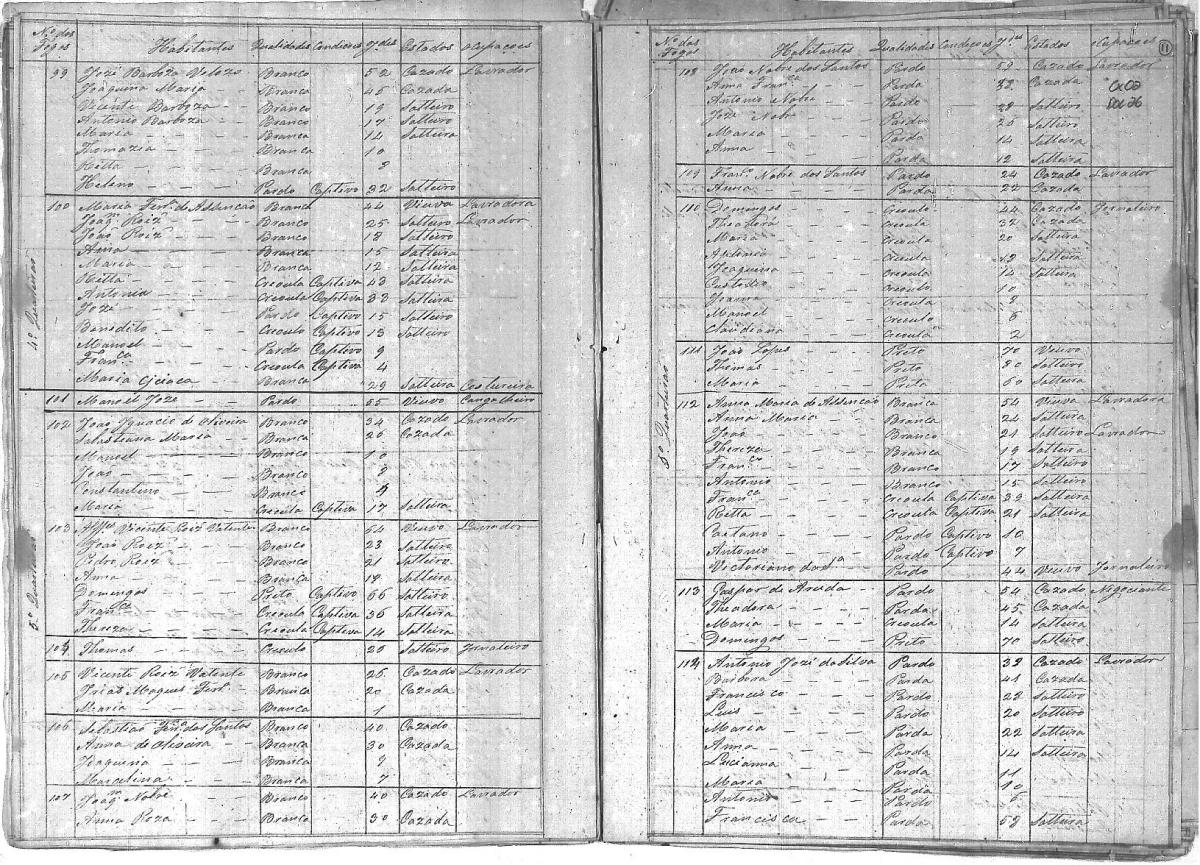 Nos dos Fogos Habitantes Qualidades Condicoes Ydes Estados Ocupaçoes
99 Jozé Barboza Velozo Branco 52 Cazado Lavrador
Joaquina Maria Branca 45 Cazada
Vicente Barboza Branco 19 Solteiro
Antonio Barboza Branco 17 Solteiro
Maria Branca 14 Solteira
Thomazia Branca 10
Ritta Branca 8
Heleno Pardo Captivo 32 Solteiro
100 Maria Ferra. de Assuncão Branca 44 Viuva Lavradora
Joaqm. Roiz Branco 25 Solteiro Lavrador
João Roiz Branco 18 Solteiro
Anna Branca 15 Solteira
Maria Branca 12 Solteira
Ritta Creoula Captiva 43 Solteira
Antonia Creoula Captiva 33 Solteira
Jozé Pardo Captivo 15 Solteiro
Benedito Creoulo Captivo 13 Solteiro
Manoel Pardo Captivo 9
Franca. Creoula Captiva 4
Maria Branca 29 Solteira Costureira
4º Quarteirão
101 Manoel Joze Pardo 55 Viuvo Cangalheiro
102 João Ignacio de Oliveira Branco 34 Cazado Lavrador
Sebastiana Maria Branca 20 Cazada
Manoel Branco 10
João Branco 8
Constantino Branco
Maria Creoula Captiva 17 Solteira
103 Alfes Vicente Roiz Valente Branco 54 Viuvo Lavrador
João Roiz Branco 23 Solteiro
Pedro Roiz Branco 21 Solteiro
Anna Branca 18 Solteira
Domingos Preto Captivo 66 Solteiro
Franca. Creoula Captiva 36 Solteira
Thereza Creoula Captiva 14 Solteira
104 Thomas Creoulo 20 Solteiro Jornaleiro
105 Vicente Roiz Valente Branco 25 Cazado Lavrador
Branca 20 Cazada
Maria Branca 1
106 Sebastião dos Santos Branco 40 Cazado
Anna de Oliveira Branca 30 Cazada
Joaquina Branca 9
Marcelina Branca 7
107 Joaqm. Nobre Branco 40 Cazado Lavrador
Anna Roza Branca 30 Cazada
5º Quarteirão
11
Nos dos Fogos Habitantes Qualidades Condicoes Yes Estados Ocupaçoes
108 João Nobre dos Santos Pardo 59 Cazado Lavrador
Anna Franca. Parda 38 Cazada
Antonio Nobre Pardo 28 Solteiro
Joze Nobre Pardo 20 Solteiro
Maria Parda 14 Solteira
Anna Parda 12 Solteira
109 Franco. Nobre dos Santos Pardo 24 Cazado Lavrador
Anna Parda 22 Cazada
110 Domingos Creoulo 44 Cazado Jornaleiro
Theadora Creoula 32 Cazada
Maria Creoula 20 Solteira
Creoula Solteira
Joaquina Creoula 14 Solteira
Custodio Creoulo 10
Joanna Creoula 8
Manoel Creoulo 5
Claudiana Creoula 2
111 João Lopes Preto 70 Viuvo
Thomas Preto 80 Solteiro
Maria Preta 60 Solteira
112 Anna Maria de Assuncão Branca 54 Viuva Lavradora
Anna Maria Branca 24 Solteira
João Branco 21 Solteiro Lavrador
Thereza Branca 19 Solteira
Franco. Branco 17 Solteiro
Antonio Branco 15 Solteiro
Franca. Creoula Captiva 39 Solteira
Ritta Creoula Captiva 21 Solteira
Caetano Pardo Captivo 10
Antonio Pardo Captivo 7
Victoriano da Sa. Pardo 44 Viuvo Jornaleiro
113 Gaspar de Arruda Pardo 54 Cazado Negociante
Theadora Parda 45 Cazada
Maria Creoula 14 Solteira
Domingos Preto 70 Solteiro
114 Antonio Jozé da Silva Pardo 39 Cazado Lavrador
Barbora Parda 41 Cazada
Francisco Pardo 22 Solteiro
Luis Pardo 20 Solteiro
Maria Parda 22 Solteira
Anna Parda 14 Solteira
Lucianna Parda 11
Maria Parda 10
Antonio Pardo 6
Francisca Parda 59 Solteira
5º Quarteirão